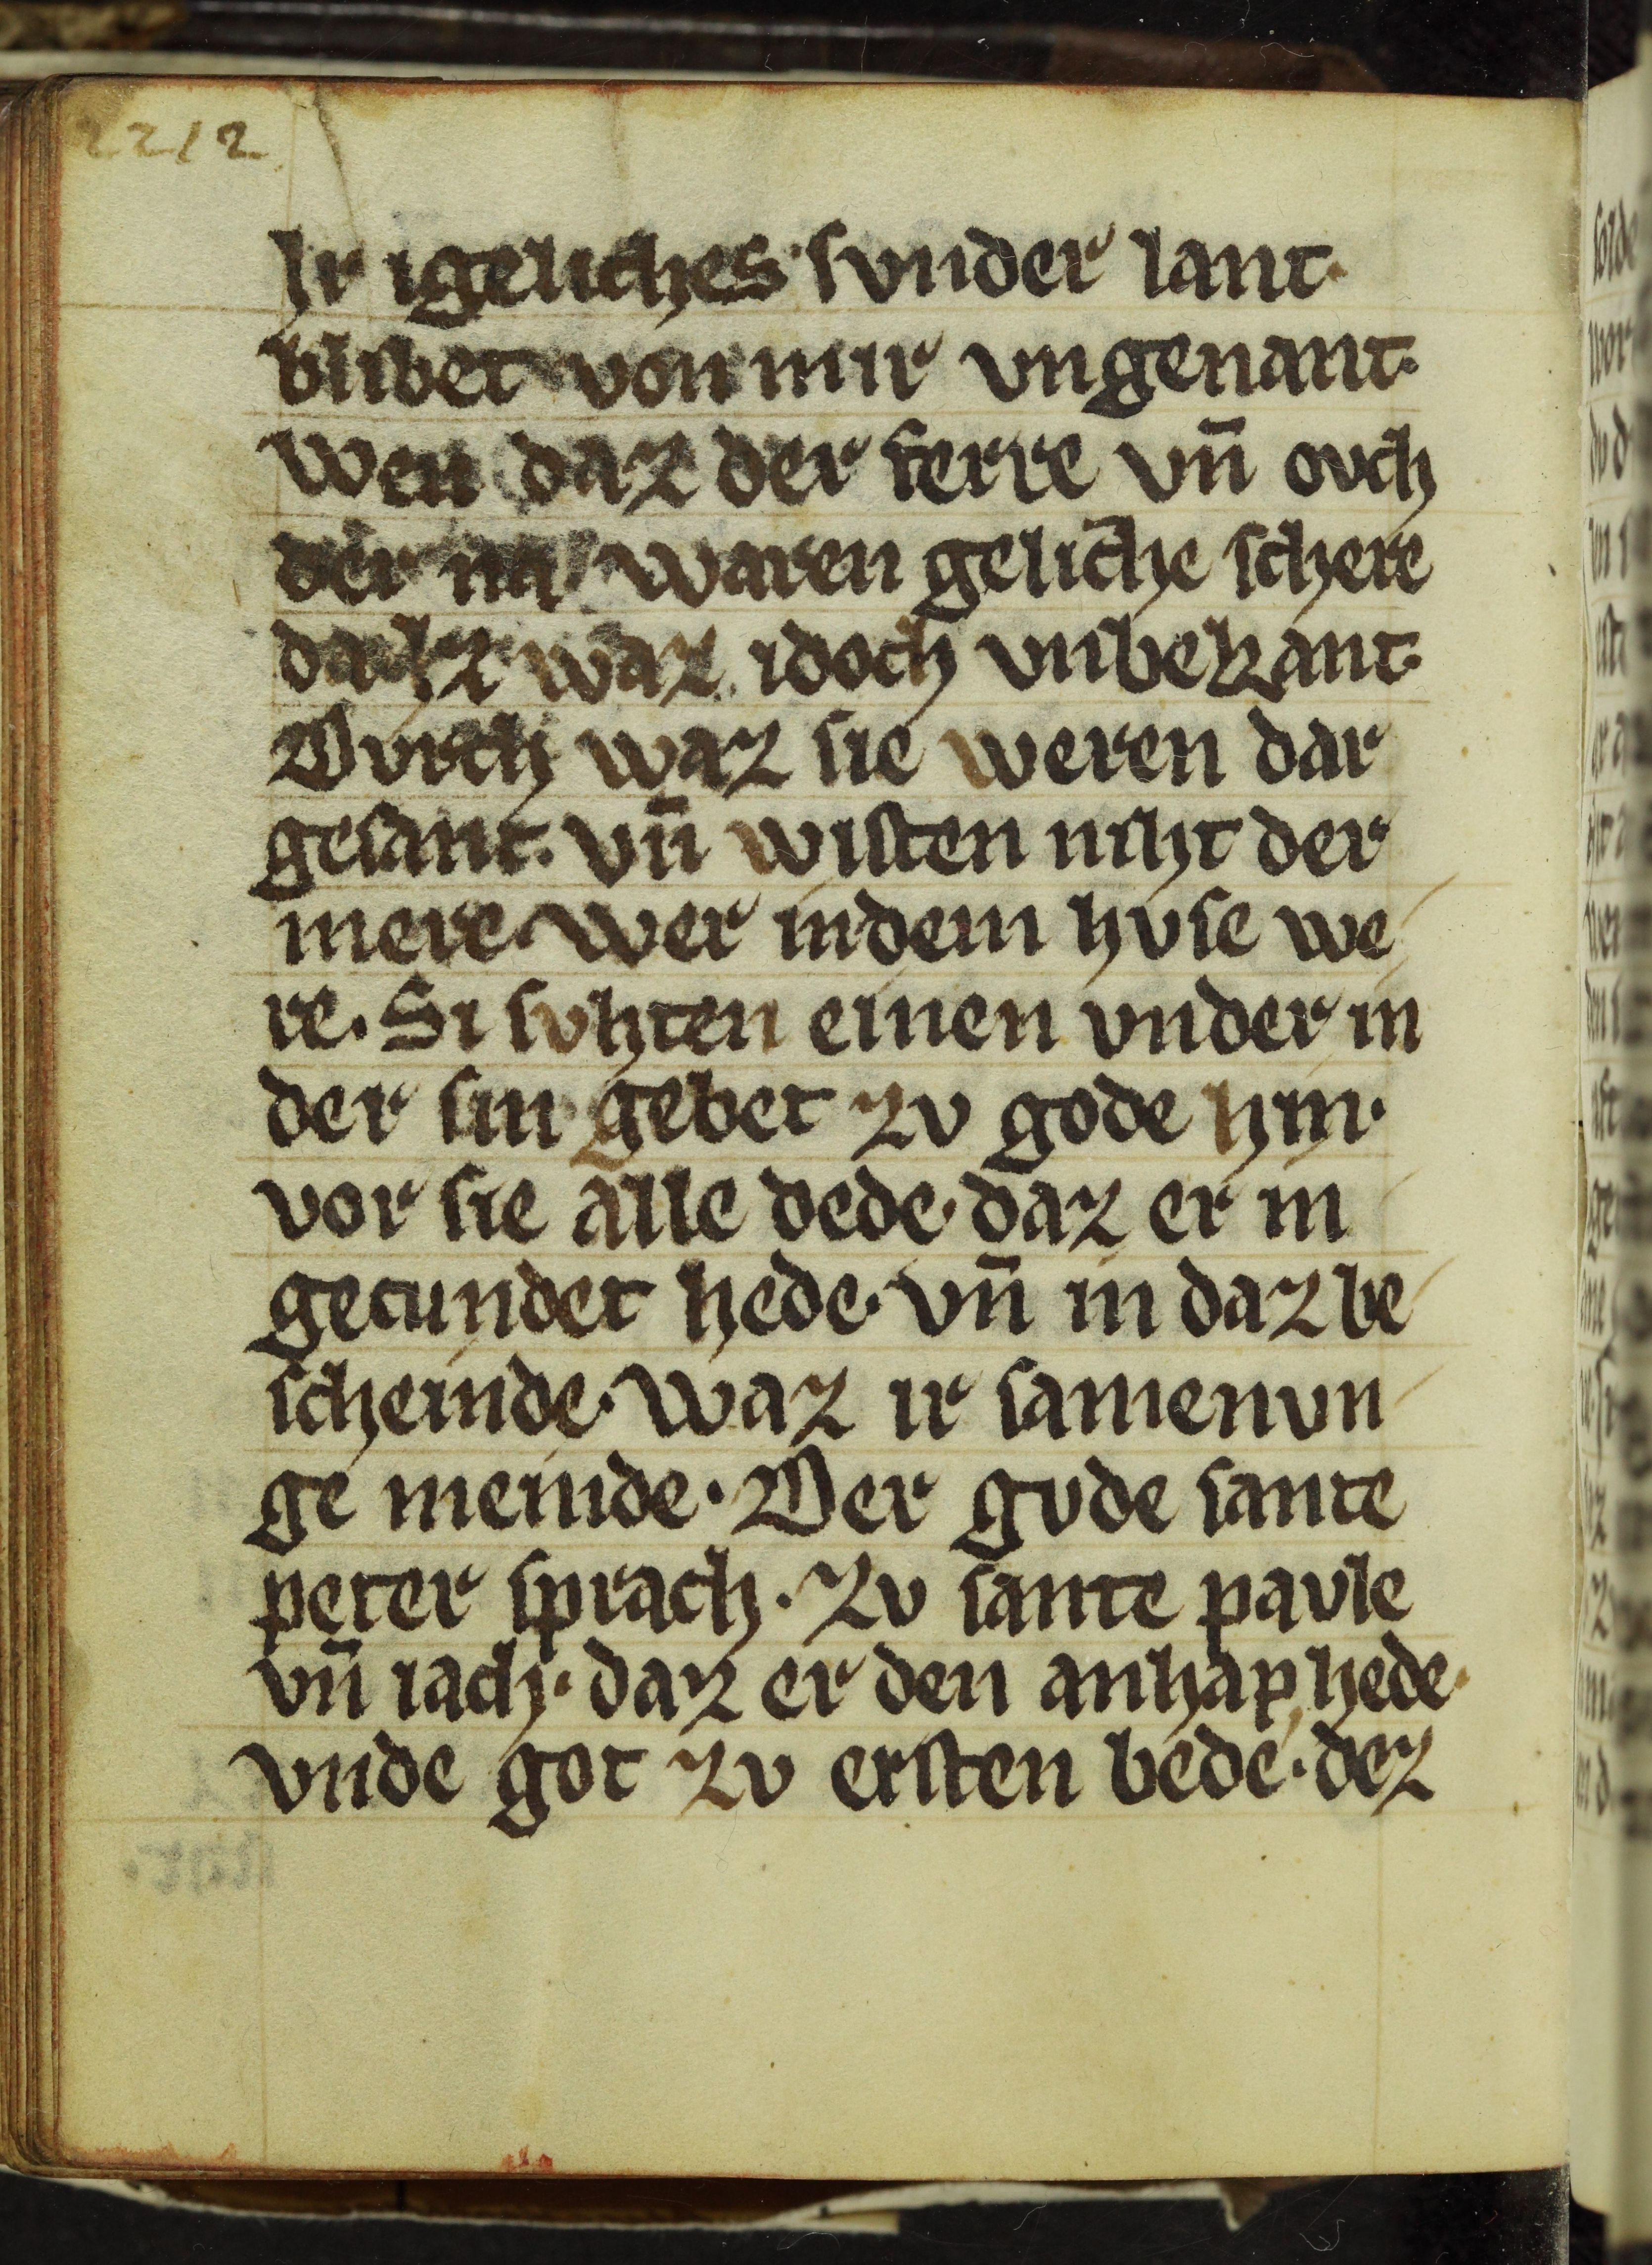 2212
Ir igeliches sunder lant.
blibet von mir vngenant.
wen daz der ferre vn̄ ovch
der na waren geliche schere
da. Iz waz idoch vnbekant.
Dvrch waz sie weren dar
gesant. vn̄ wisten niht der
mere. wer in dem hvse we
re. Si svhten einen vnder in
der sin gebet zv gode hin.
vor sie alle dede. daz er in
gecundet hede. vn̄ in daz be
scheinde. waz ir samenvn
ge meinde. Der gvde sante
peter sprach. Zv sante pavle
vn̄ iach. daz er den anhap hede.
vnde got zv ersten bede. dez